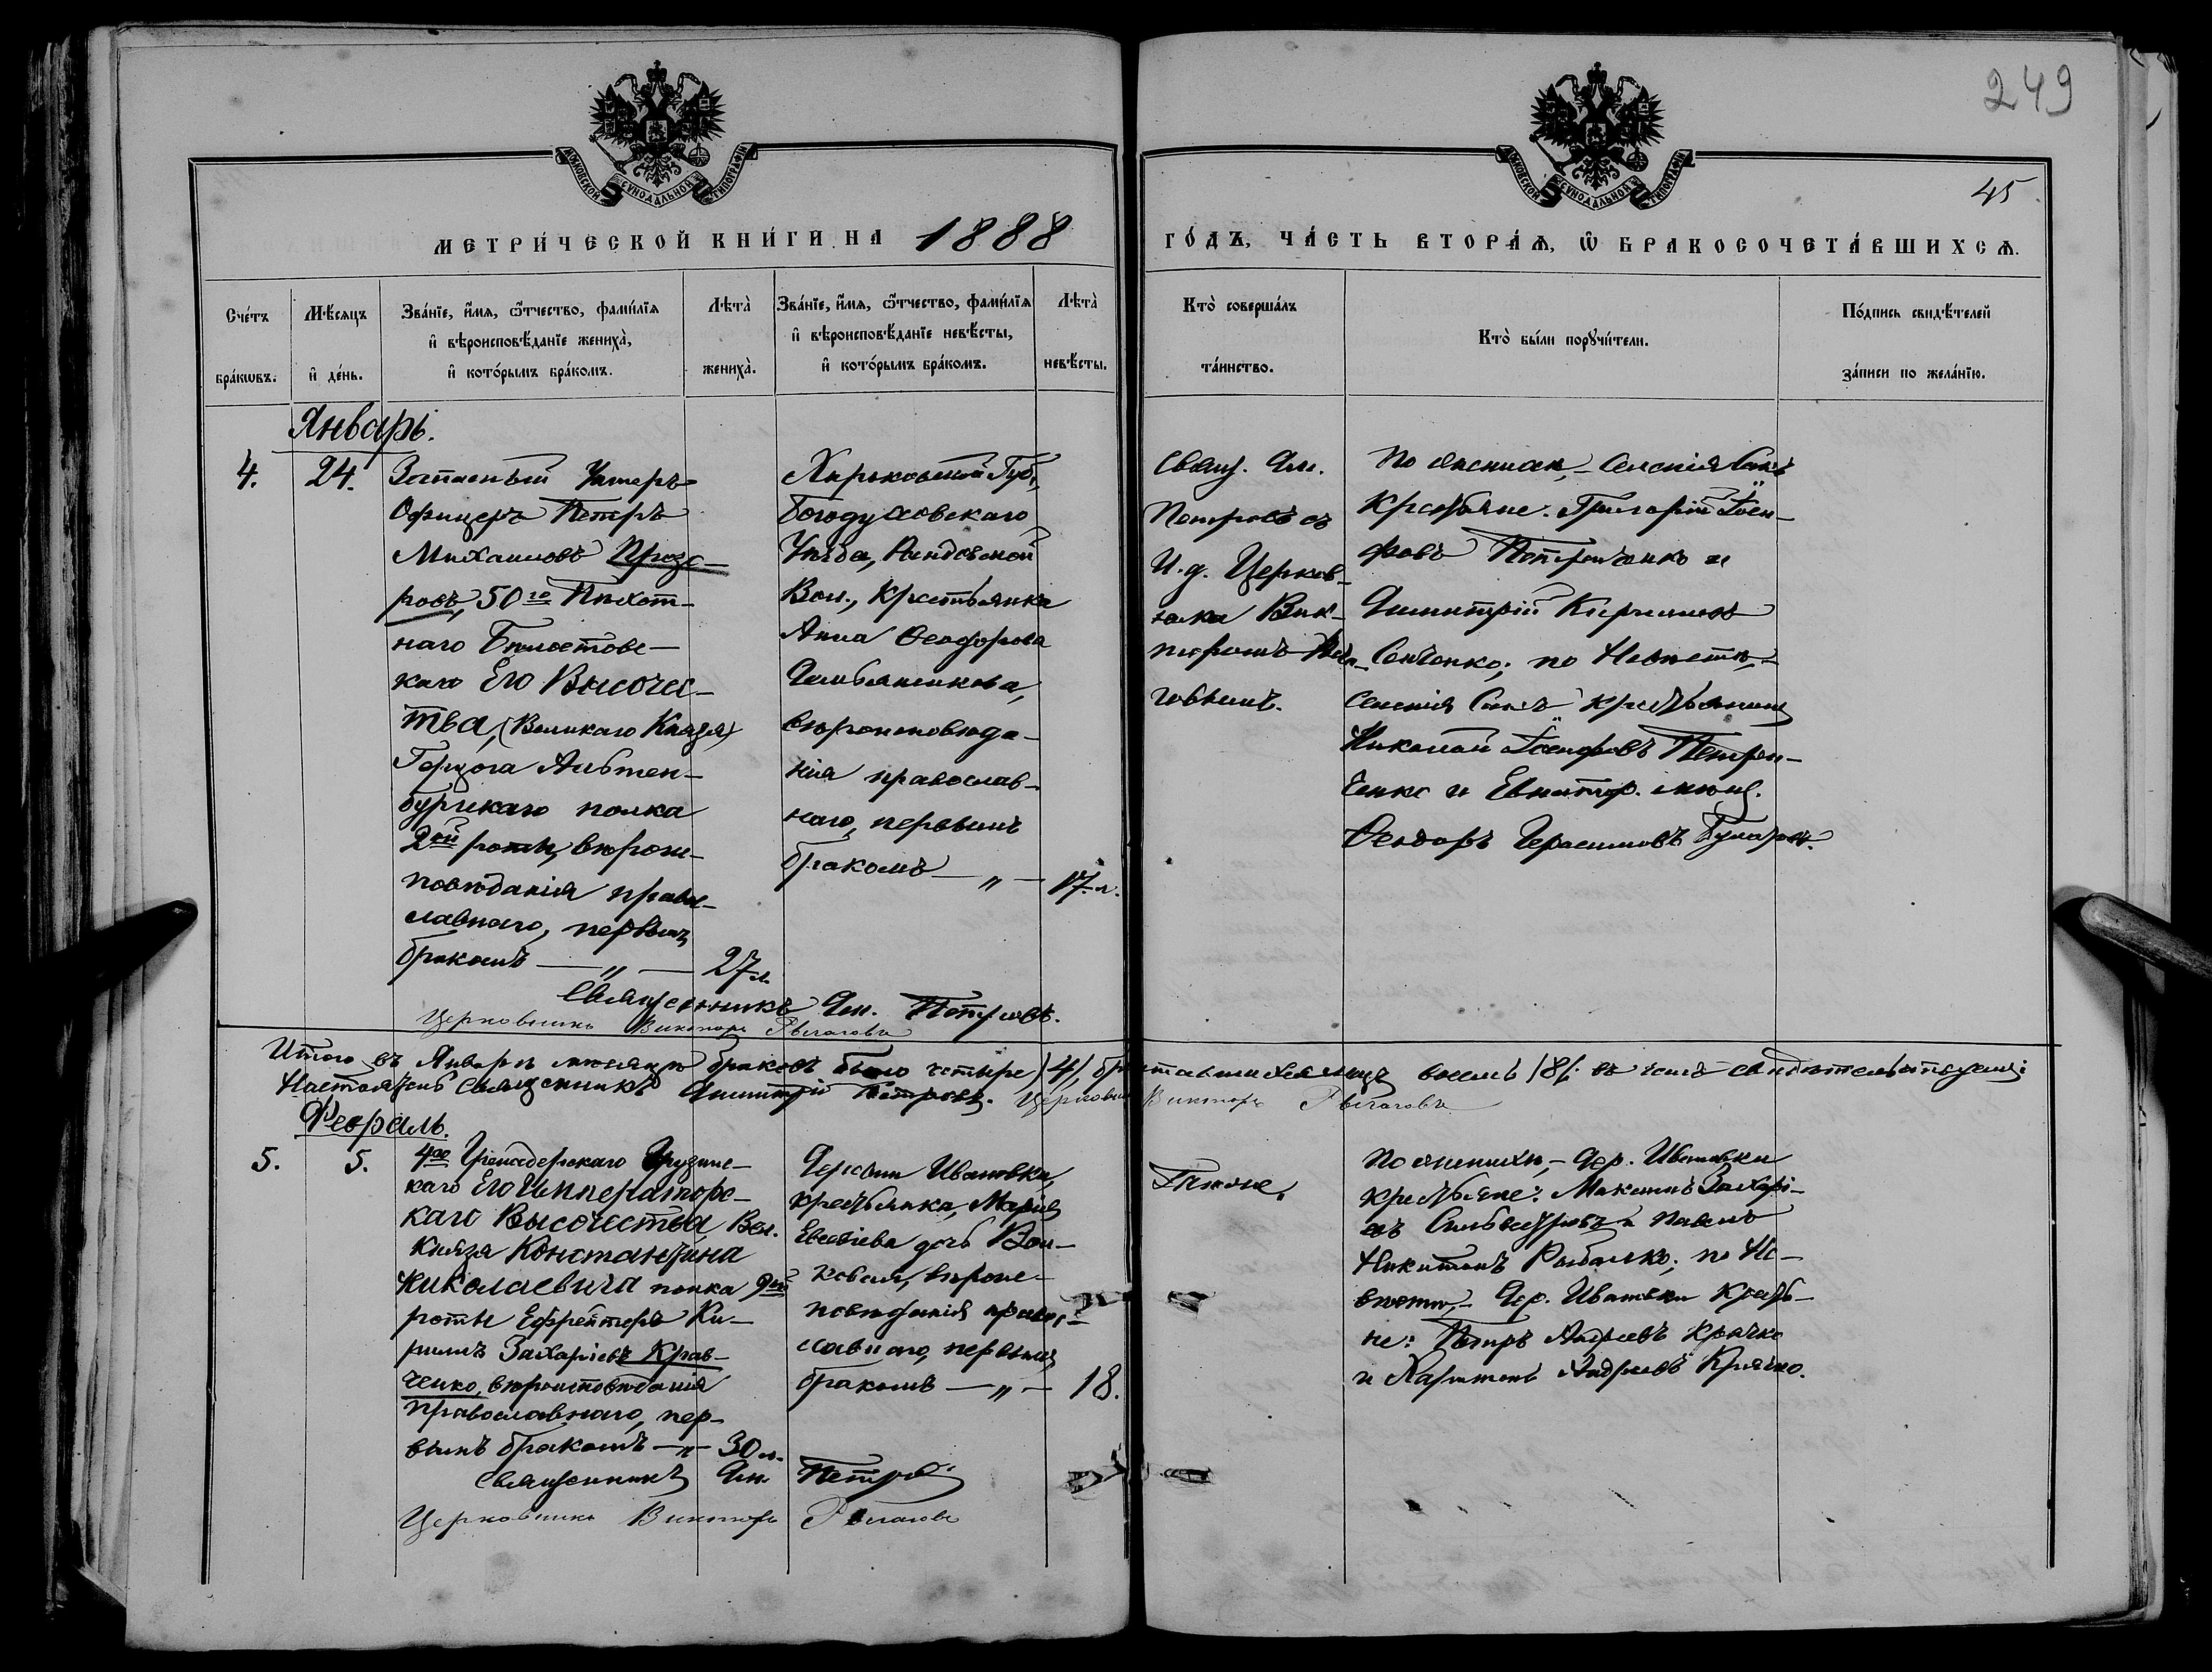 249
45
МОСКОВСКОЙ СУНОДАЛЬНОЙ ТИПОГРАФІИ
МОСКОВСКОЙ СУНОДАЛЬНОЙ ТИПОГРАФІИ
МЕТРИ́ЧЕСКОЙ КНИ́ГИ НА 1888
ГО́ДЪ, ЧА́СТЬ ВТОРА́Ѧ, Ѡ БРАКОСОЧЕТА́ВШИХСѦ.
Сче́тъ
бра́кѡвъ.
Мѣ́сѧцъ
и҆ де́нь.
Зва́нїе, и҆́мѧ, ѻ҆́тчество, фами́лїѧ
и҆ вѣроисповѣ́данїе жениха̀,
и҆ кото́рымъ бра́комъ.
Лѣта̀
жениха̀.
Зва́нїе, и҆́мѧ, ѻ҆́тчество, фами́лїѧ
и҆ вѣроисповѣ́данїе невѣ́сты,
и҆ кото́рымъ бра́комъ.
Лѣта̀
невѣ́сты.
Кто̀ соверша́лъ
та́инство.
Кто̀ бы́ли порꙋчи́тели.
По́дпись свидѣ́телей
за́писи по жела́нїю.
Январь.
4.
24.
Запасный Унтеръ-
Офицеръ Петръ
Михаиловъ Прозо-
ровъ, 50го Пѣхот-
наго Бѣлостокс-
каго Его Высочес-
тва, (Великаго Князя)
Герцога Альтен-
бургскаго полка
2ой роты, вѣроис-
повѣданія право-
славнаго, первымъ
бракомъ — „ — 27 л.
Харьковской Губ.,
Богодуховскаго
Уѣзда,
Вол., Крестьянка
Анна Ѳеодорова
вѣроисповѣда-
нія православ-
наго, первымъ
бракомъ — „ — 17. л.
Свящ. Дим.
Петровъ съ
И. д. Церков-
ника Вик-
торомъ
По женихѣ, –
Крестьяне: Григорій Іоси-
фовъ Петренко и
Димитрій
по Невѣстѣ, –
крестьянинъ
Николай Іосифовъ Петрен-
ко и
Ѳеодоръ Герасимовъ
Священникъ Дим. Петровъ.
Церковникъ Викторъ
Итого въ Январѣ мѣсяцѣ браковъ было четыре /4/, бракосочетавшихся лицъ восемь /8/. въ чемъ свидѣтельствуемъ:
Настоятель Священникъ Димитрій Петровъ. Церковникъ Викторъ
Февраль.
5.
5.
4го Гренадерскаго Грузинс-
каго Его Императорс-
каго Высочества, Вел.
Князя Константина
Николаевича полка 9ой
роты Ефрейторъ Ки-
риллъ Захаріевъ Крав-
ченко, вѣроисповѣданія
православнаго, пер-
вымъ бракомъ — „ — 30 л.
Деревни Ивановки,
крестьянка, Марія
Евсевіева дочь Вол-
ковая, вѣроис-
повѣданія право-
славнаго, первымъ
бракомъ — „ — 18.
Тѣ-же.
По женихѣ, – Дер. Ивановки
крестьяне: Максимъ Захарі-
евъ Сильвестровъ и Павелъ
Никитинъ Рыбалко; по Не-
вѣстѣ, – Дер. Ивановки Крестья-
не: Петръ Андреевъ Крячко
и Харитонъ Андреевъ Крячко.
Священникъ Дим. Петровъ
Церковникъ Викторъ